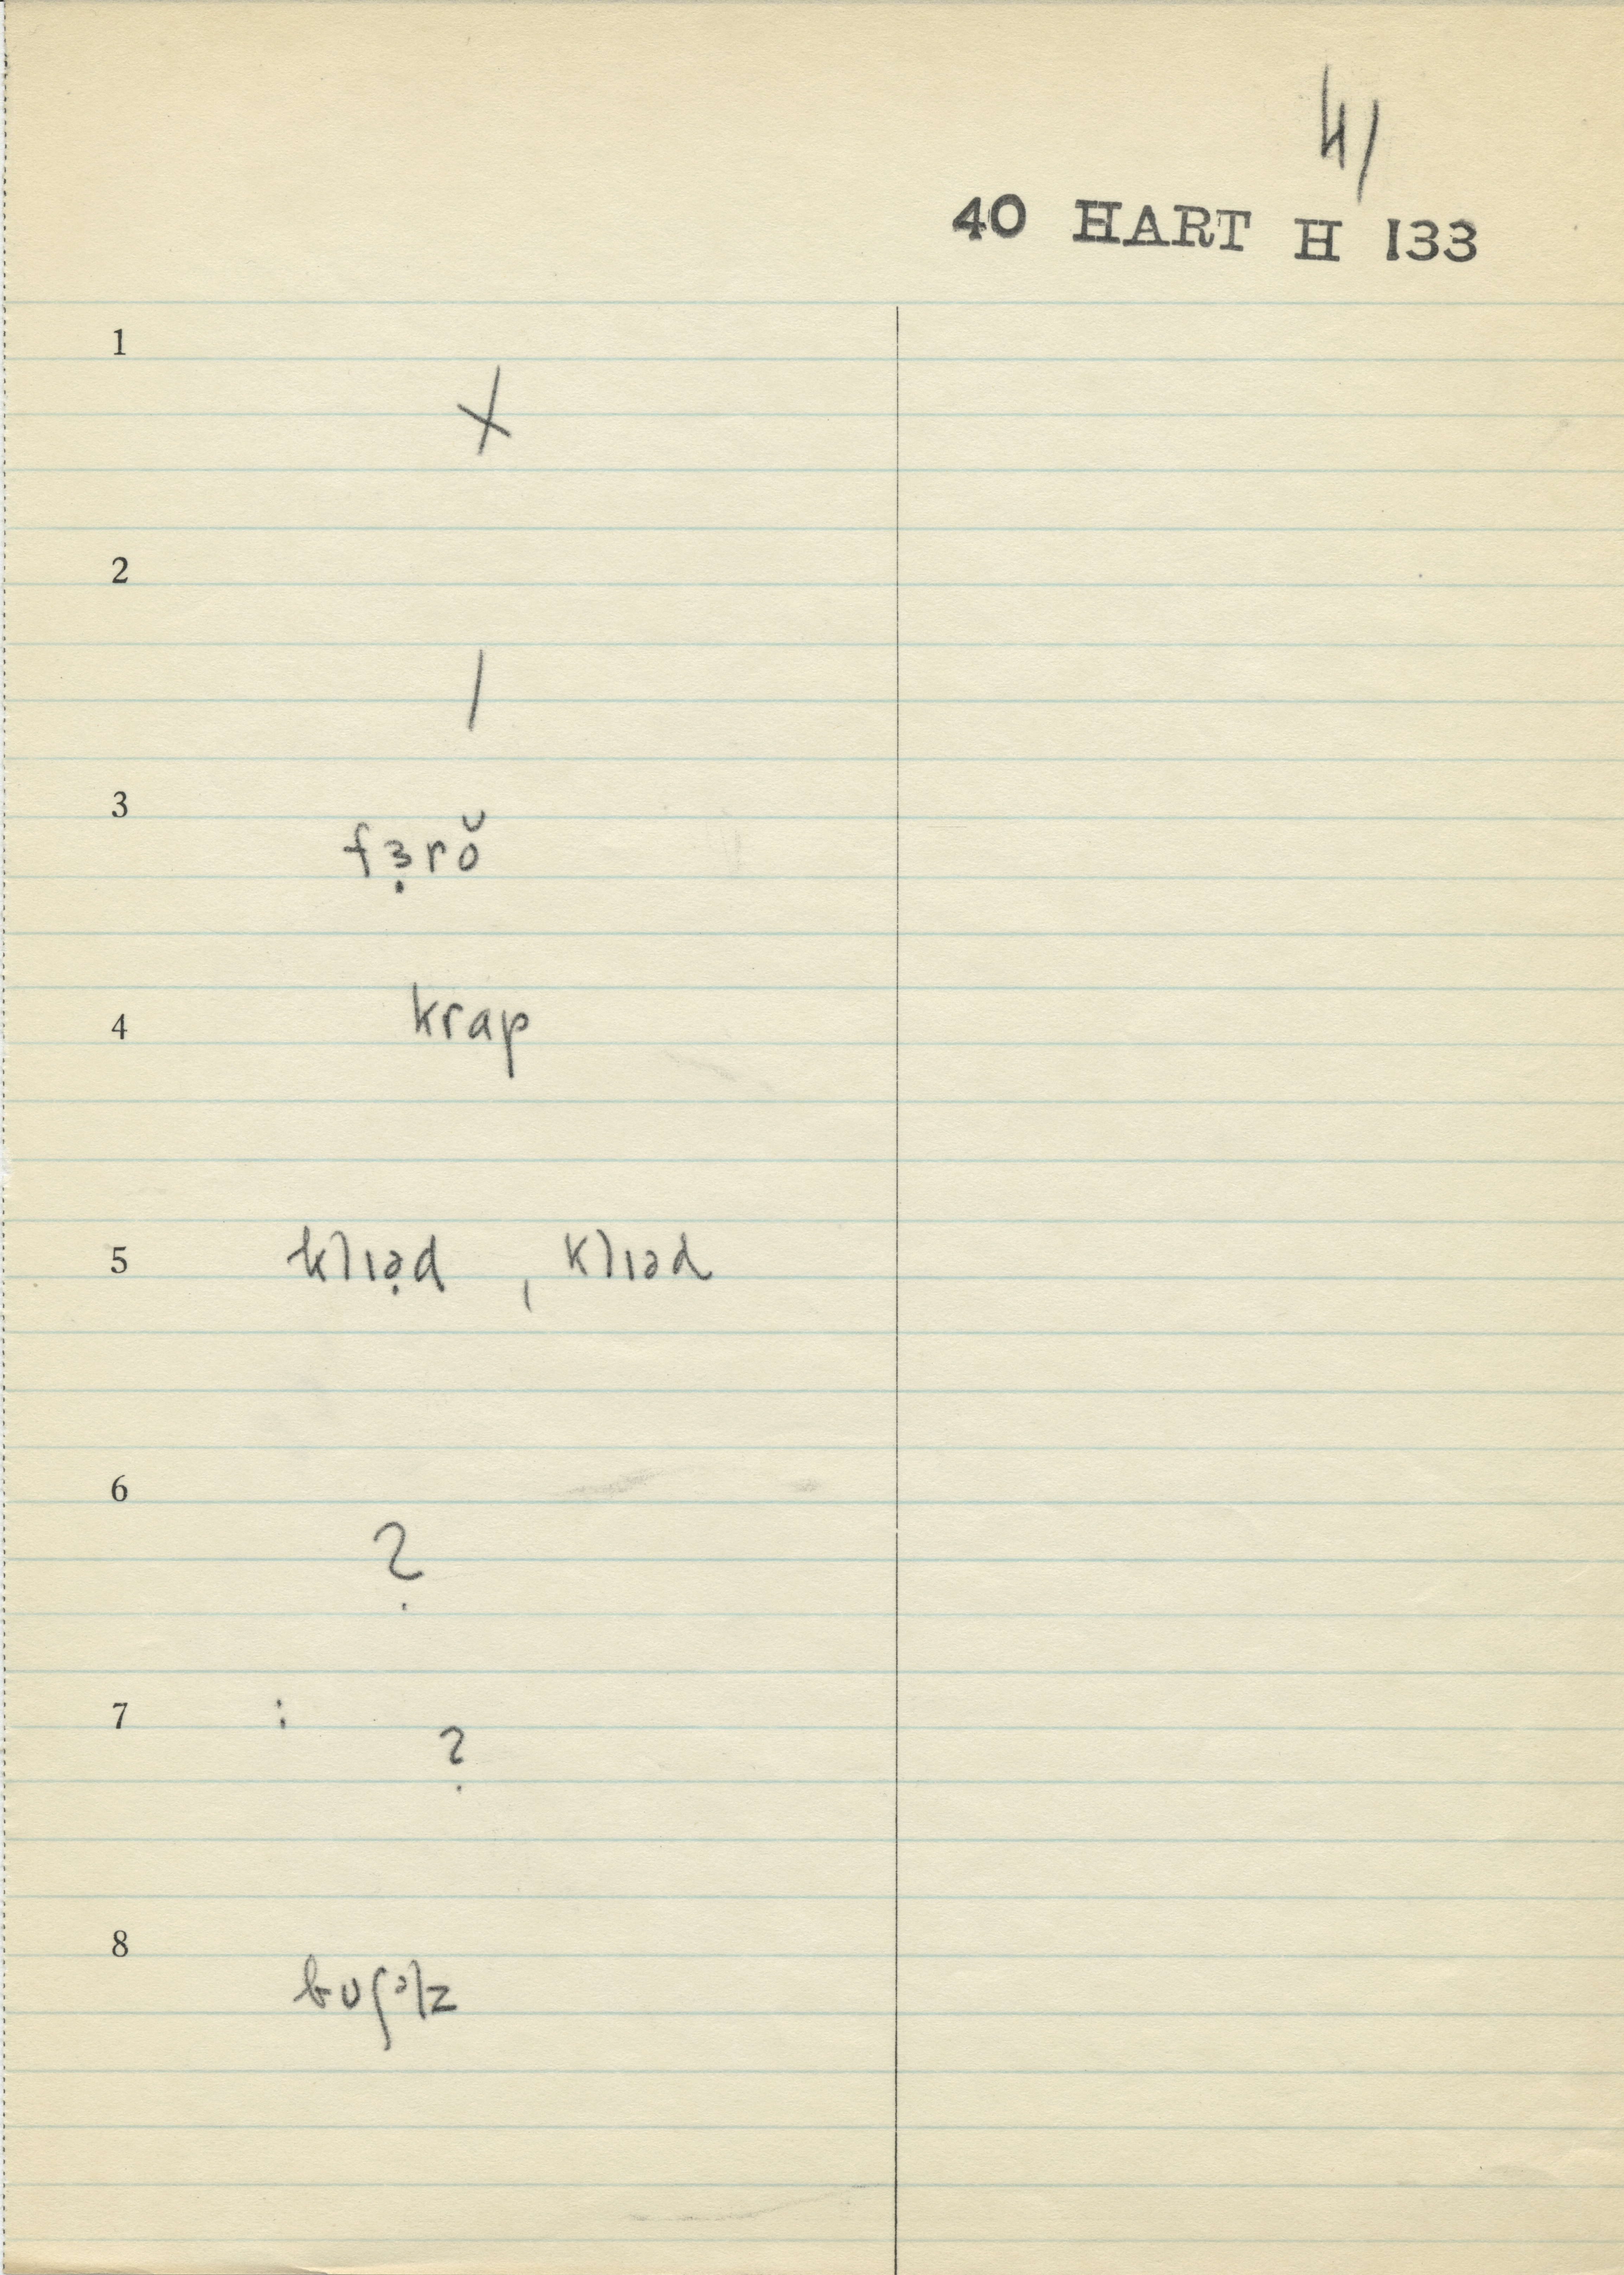 41
40 HART H 133
1
X
2
/
3
fɜ̣rŏ
4
krap
5
klɪə̣d , klɪəd
6
?
7 :
?
8
bʊʃəlz